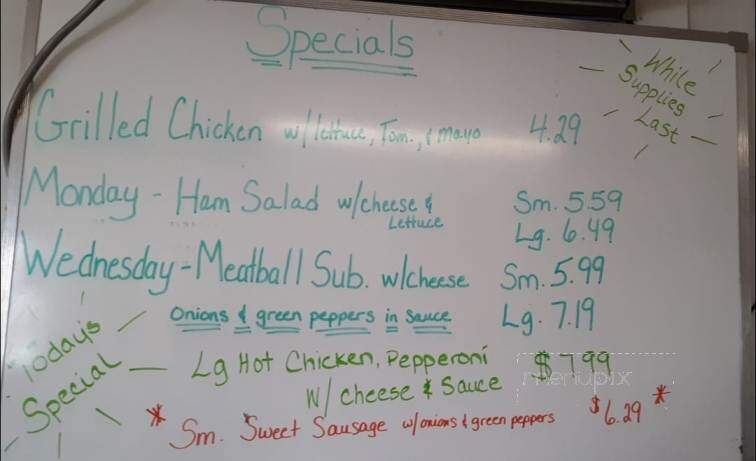 Specials
While
Supplies
Last
Grilled Chicken w/lettuce, Tom., & mayo 4.29
Monday - Ham Salad w/cheese & Sm. 5.59
Lettuce Lg. 6.49
Wednesday - Meatball Sub. w/cheese Sm. 5.99
Onions & green peppers in Sauce Lg. 7.19
Today's
Special
Lg Hot Chicken, Pepperoni $7.99
W/ cheese & Sauce
menupix
* Sm. Sweet Sausage w/onions & green peppers $6.29 *